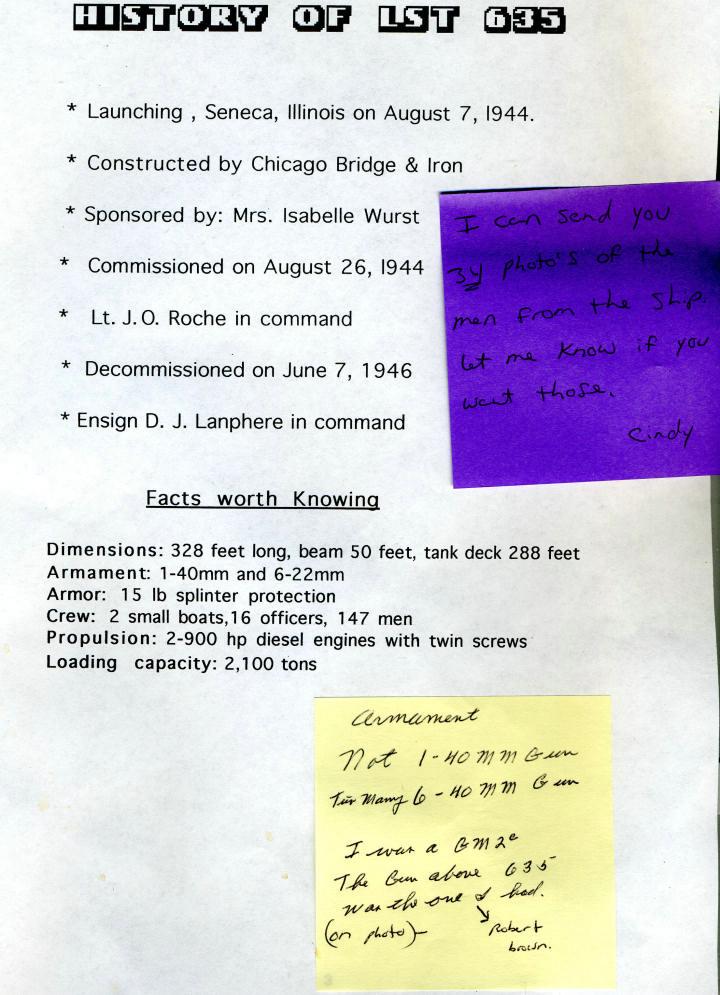 HISTORY OF LST 635
* Launching , Seneca, Illinois on August 7, 1944.
* Constructed by Chicago Bridge & Iron
* Sponsored by: Mrs. Isabelle Wurst
* Commissioned on August 26, 1944
* Lt. J.O. Roche in command
* Decommissioned on June 7, 1946
* Ensign D. J. Lanphere in command
I can send you
34 photo's of the
men from the ship.
let me know if you
want those.
Cindy
Facts worth Knowing
Dimensions: 328 feet long, beam 50 feet, tank deck 288 feet
Armament: 1-40mm and 6-22mm
Armor: 15 lb splinter protection
Crew: 2 small boats,16 officers, 147 men
Propulsion: 2-900 hp diesel engines with twin screws
Loading capacity: 2,100 tons
Armament
Not 1-40 MM Gun
Many 6-40 MM Gun
I was a GM2c
The Gun above 635
was the one I had.
(on photo)
Robert
brown.